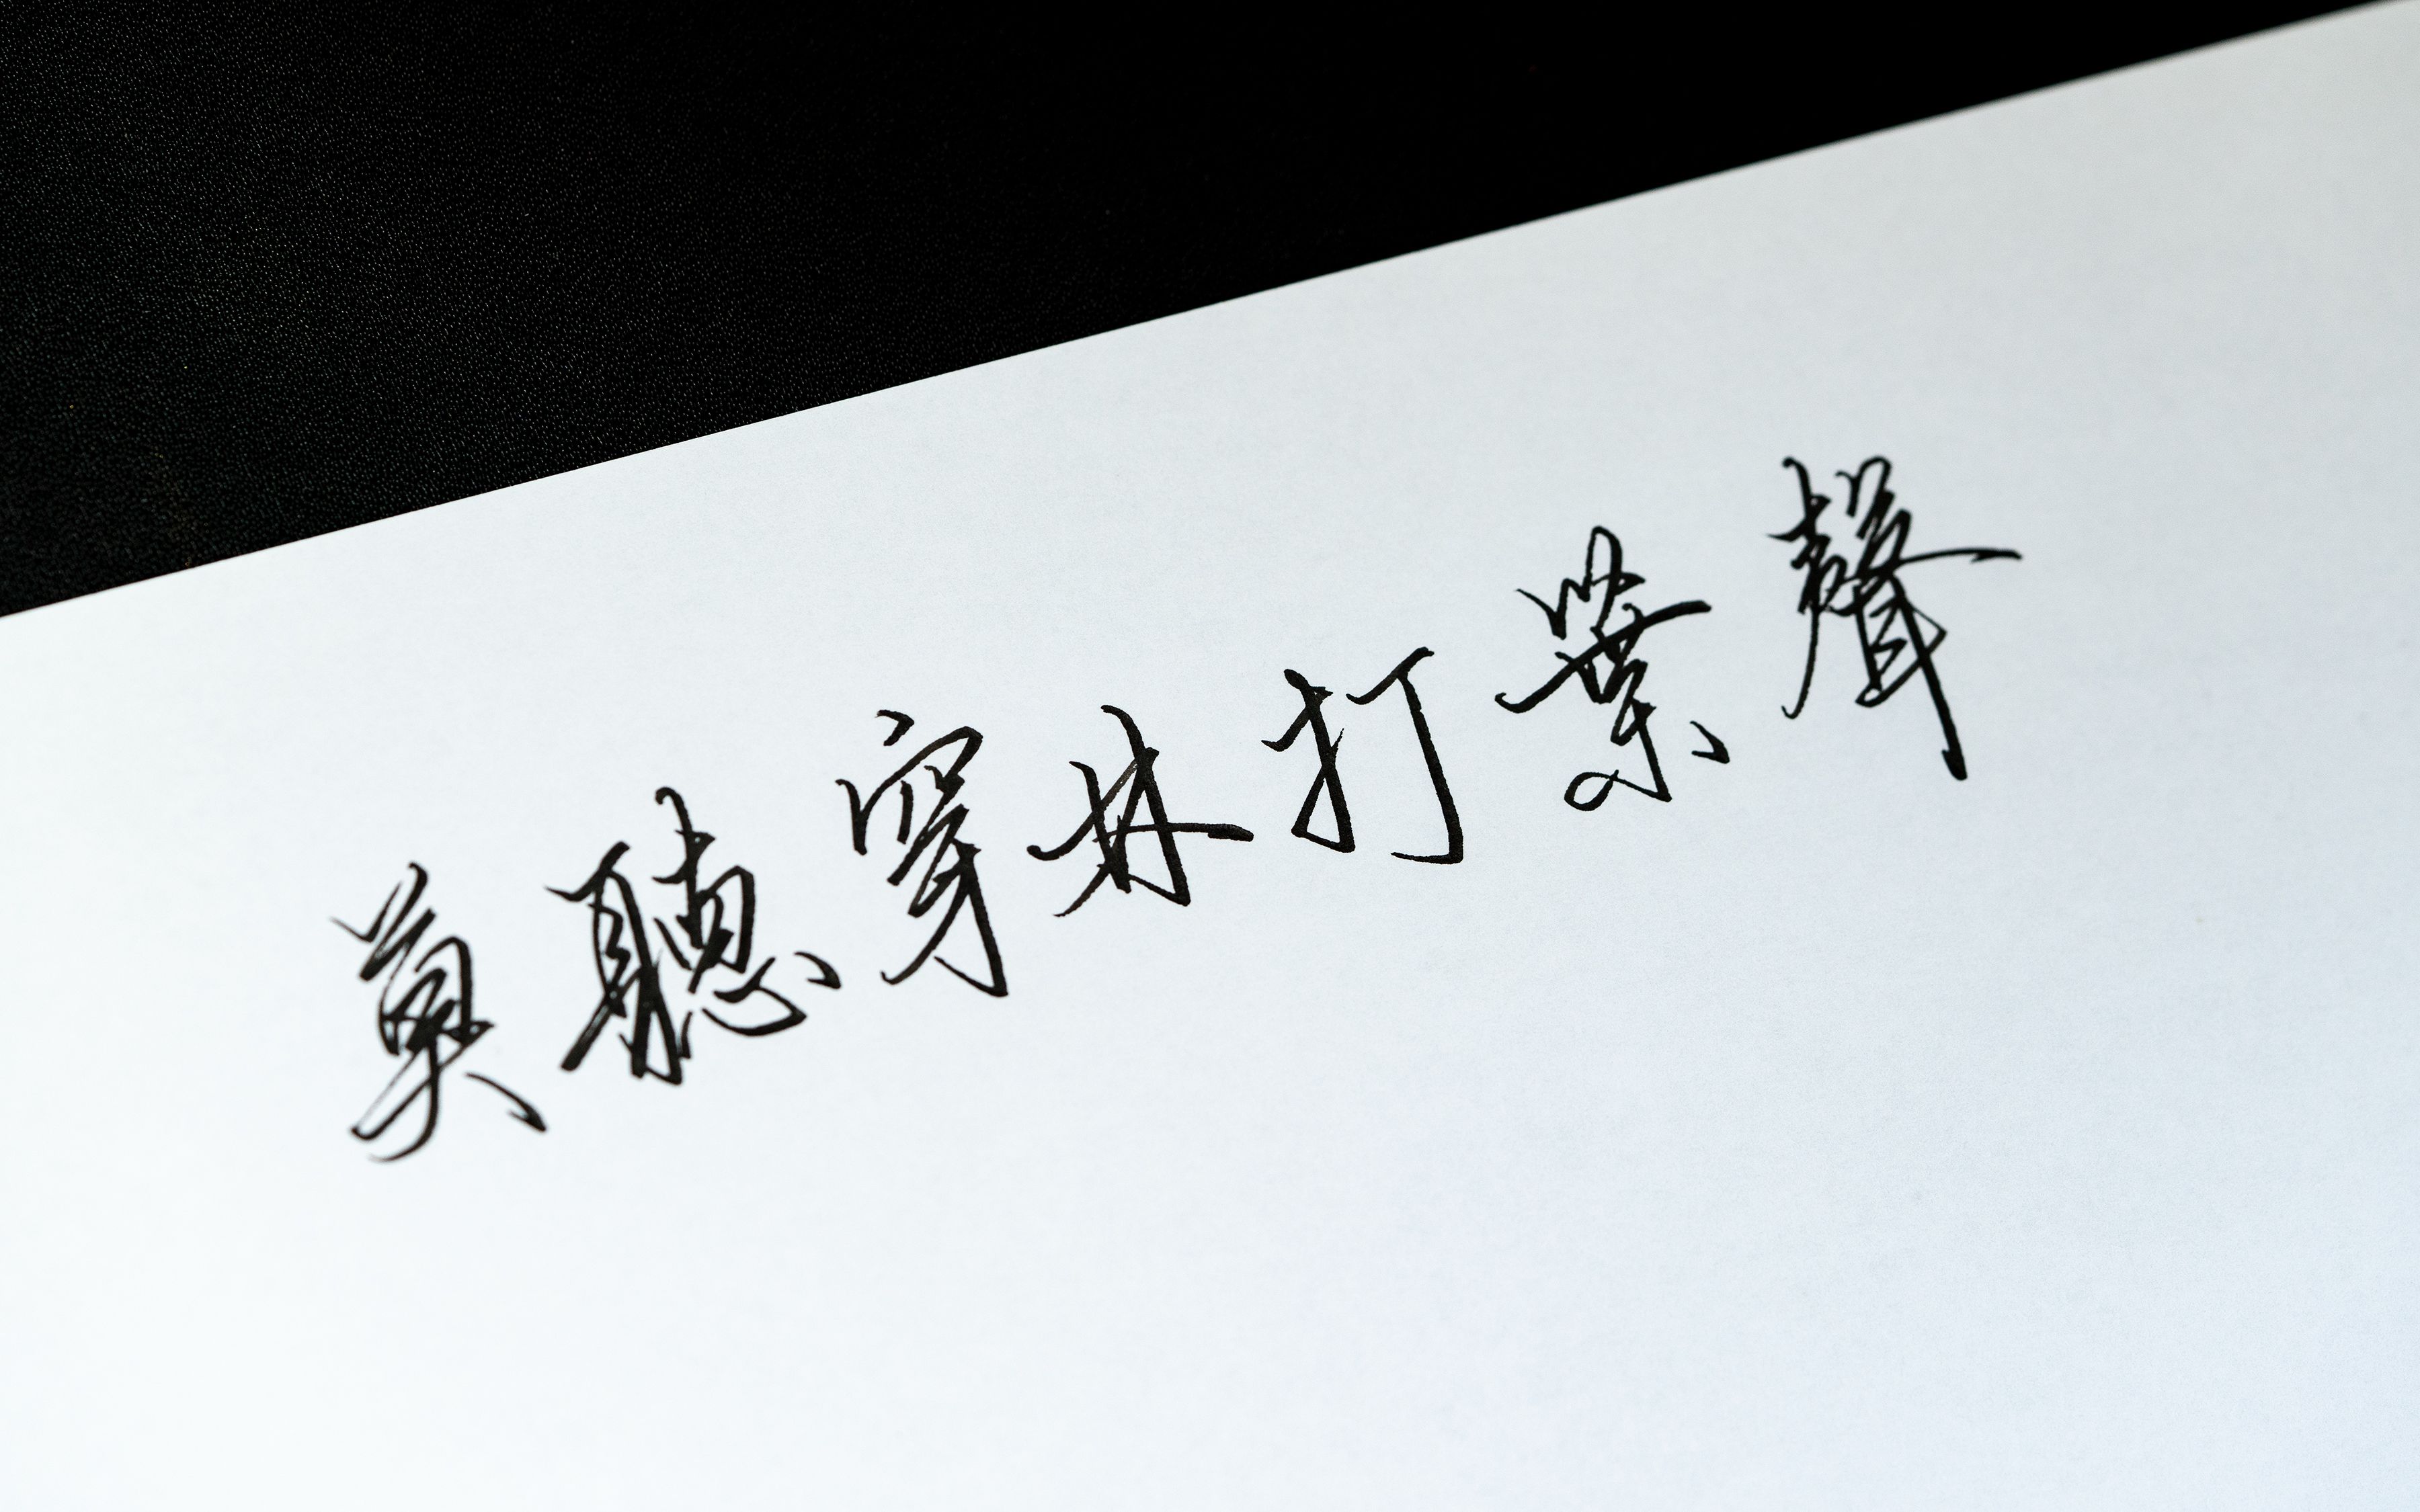 莫聽穿林打葉聲